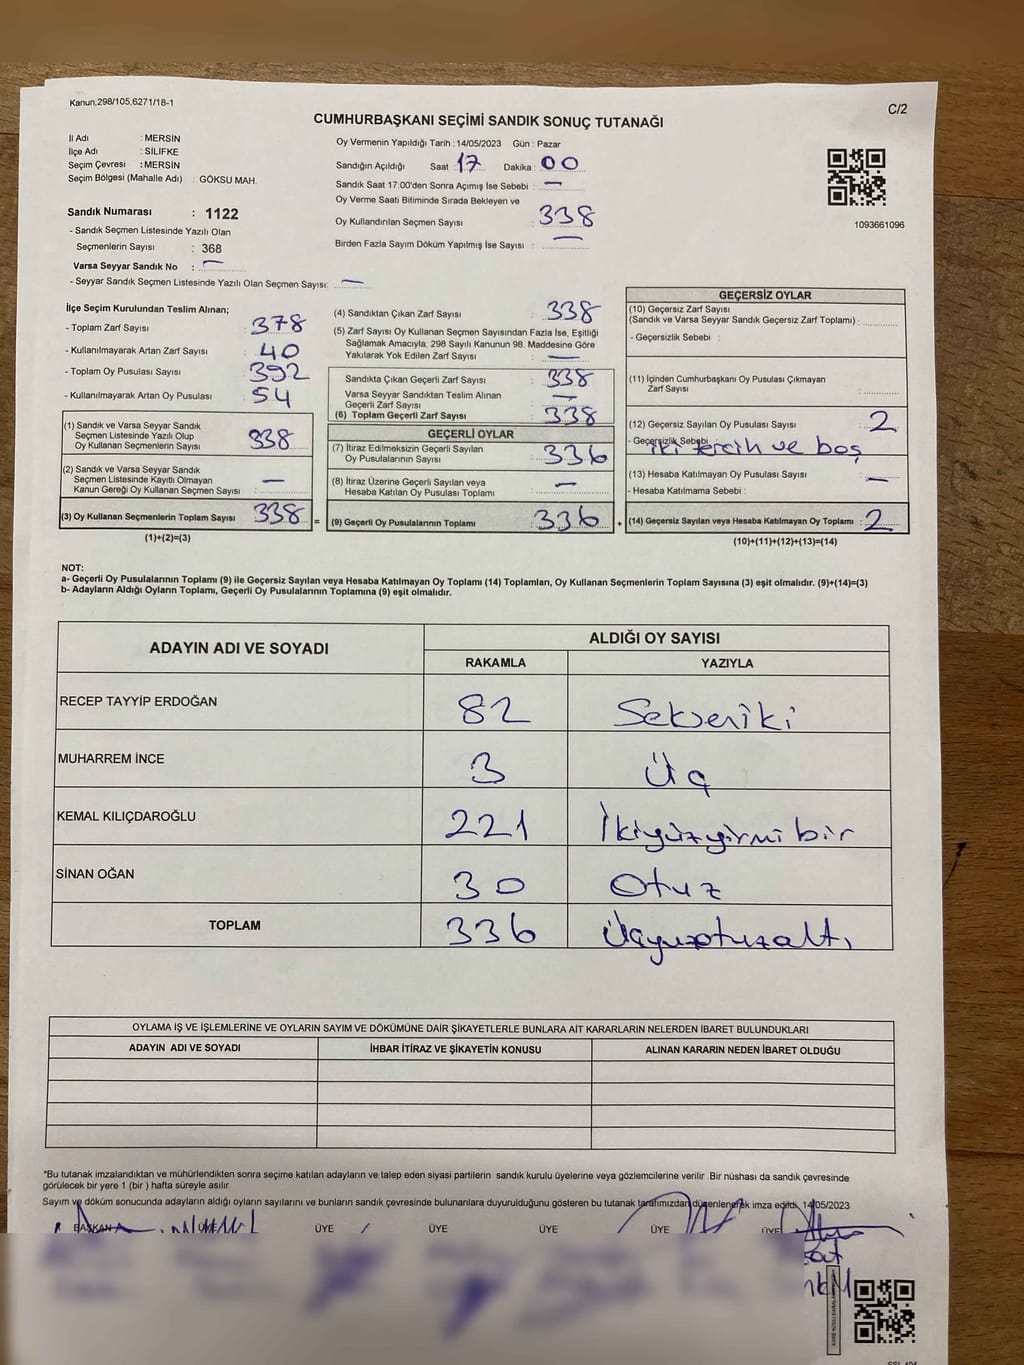 Kanun;298/105,6271/18-1
C/2
CUMHURBAŞKANI SEÇİMİ SANDIK SONUÇ TUTANAĞI
İl Adı : MERSİN
İlçe Adı : SİLİFKE
Seçim Çevresi : MERSİN
Seçim Bölgesi (Mahalle Adı) : GÖKSU MAH.
Oy Vermenin Yapıldığı Tarih : 14/05/2023 Gün : Pazar
Sandığın Açıldığı Saat : 17 Dakika : 00
Sandık Saat 17:00'den Sonra Açımış İse Sebebi : —
Oy Verme Saati Bitiminde Sırada Bekleyen ve
Oy Kullandırılan Seçmen Sayısı : 338
Birden Fazla Sayım Döküm Yapılmış İse Sayısı : —
1093661096
Sandık Numarası : 1122
- Sandık Seçmen Listesinde Yazılı Olan
Seçmenlerin Sayısı : 368
Varsa Seyyar Sandık No : —
- Seyyar Sandık Seçmen Listesinde Yazılı Olan Seçmen Sayısı: —
İlçe Seçim Kurulundan Teslim Alınan;
- Toplam Zarf Sayısı : 378
- Kullanılmayarak Artan Zarf Sayısı : 40
- Toplam Oy Pusulası Sayısı : 392
- Kullanılmayarak Artan Oy Pusulası : 54
(1) Sandık ve Varsa Seyyar Sandık
Seçmen Listesinde Yazılı Olup
Oy Kullanan Seçmenlerin Sayısı : 338
(2) Sandık ve Varsa Seyyar Sandık
Seçmen Listesinde Kayıtlı Olmayan
Kanun Gereği Oy Kullanan Seçmen Sayısı : —
(3) Oy Kullanan Seçmenlerin Toplam Sayısı : 338 =
(1)+(2)=(3)
(4) Sandıktan Çıkan Zarf Sayısı : 338
(5) Zarf Sayısı Oy Kullanan Seçmen Sayısından Fazla İse, Eşitliği
Sağlamak Amacıyla; 298 Sayılı Kanunun 98. Maddesine Göre
Yakılarak Yok Edilen Zarf Sayısı : —
Sandıkta Çıkan Geçerli Zarf Sayısı : 338
Varsa Seyyar Sandıktan Teslim Alınan
Geçerli Zarf Sayısı : —
(6) Toplam Geçerli Zarf Sayısı : 338
GEÇERLİ OYLAR
(7) İtiraz Edilmeksizin Geçerli Sayılan
Oy Pusulalarının Sayısı : 336
(8) İtiraz Üzerine Geçerli Sayılan veya
Hesaba Katılan Oy Pusulası Toplamı : —
(9) Geçerli Oy Pusulalarının Toplamı : 336 +
GEÇERSİZ OYLAR
(10) Geçersiz Zarf Sayısı
(Sandık ve Varsa Seyyar Sandık Geçersiz Zarf Toplamı) :
- Geçersizlik Sebebi :
(11) İçinden Cumhurbaşkanı Oy Pusulası Çıkmayan
Zarf Sayısı :
(12) Geçersiz Sayılan Oy Pusulası Sayısı : 2
- Geçersizlik Sebebi iki tercih ve boş
(13) Hesaba Katılmayan Oy Pusulası Sayısı : —
- Hesaba Katılmama Sebebi :
(14) Geçersiz Sayılan veya Hesaba Katılmayan Oy Toplamı : 2
(10)+(11)+(12)+(13)=(14)
NOT:
a- Geçerli Oy Pusulalarının Toplamı (9) ile Geçersiz Sayılan veya Hesaba Katılmayan Oy Toplamı (14) Toplamları, Oy Kullanan Seçmenlerin Toplam Sayısına (3) eşit olmalıdır. (9)+(14)=(3)
b- Adayların Aldığı Oyların Toplamı, Geçerli Oy Pusulalarının Toplamına (9) eşit olmalıdır.
ADAYIN ADI VE SOYADI ALDIĞI OY SAYISI
RAKAMLA YAZIYLA
RECEP TAYYİP ERDOĞAN 82 Sekseniki
MUHARREM İNCE 3 Üç
KEMAL KILIÇDAROĞLU 221 İkiyüzyirmi bir
SİNAN OĞAN 30 Otuz
TOPLAM 336 Üçyüzotuzaltı
OYLAMA İŞ VE İŞLEMLERİNE VE OYLARIN SAYIM VE DÖKÜMÜNE DAİR ŞİKAYETLERLE BUNLARA AİT KARARLARIN NELERDEN İBARET BULUNDUKLARI
ADAYIN ADI VE SOYADI İHBAR İTİRAZ VE ŞİKAYETİN KONUSU ALINAN KARARIN NEDEN İBARET OLDUĞU
*Bu tutanak imzalandıktan ve mühürlendikten sonra seçime katılan adayların ve talep eden siyasi partilerin sandık kurulu üyelerine veya gözlemcilerine verilir. Bir nüshası da sandık çevresinde
görülecek bir yere 1 (bir ) hafta süreyle asılır.
Sayım ve döküm sonucunda adayların aldığı oyların sayılarını ve bunların sandık çevresinde bulunanlara duyurulduğunu gösteren bu tutanak tarafımızdan düzenlenerek imza edildi. 14/05/2023
BAŞKAN ÜYE ÜYE ÜYE ÜYE ÜYE ÜYE